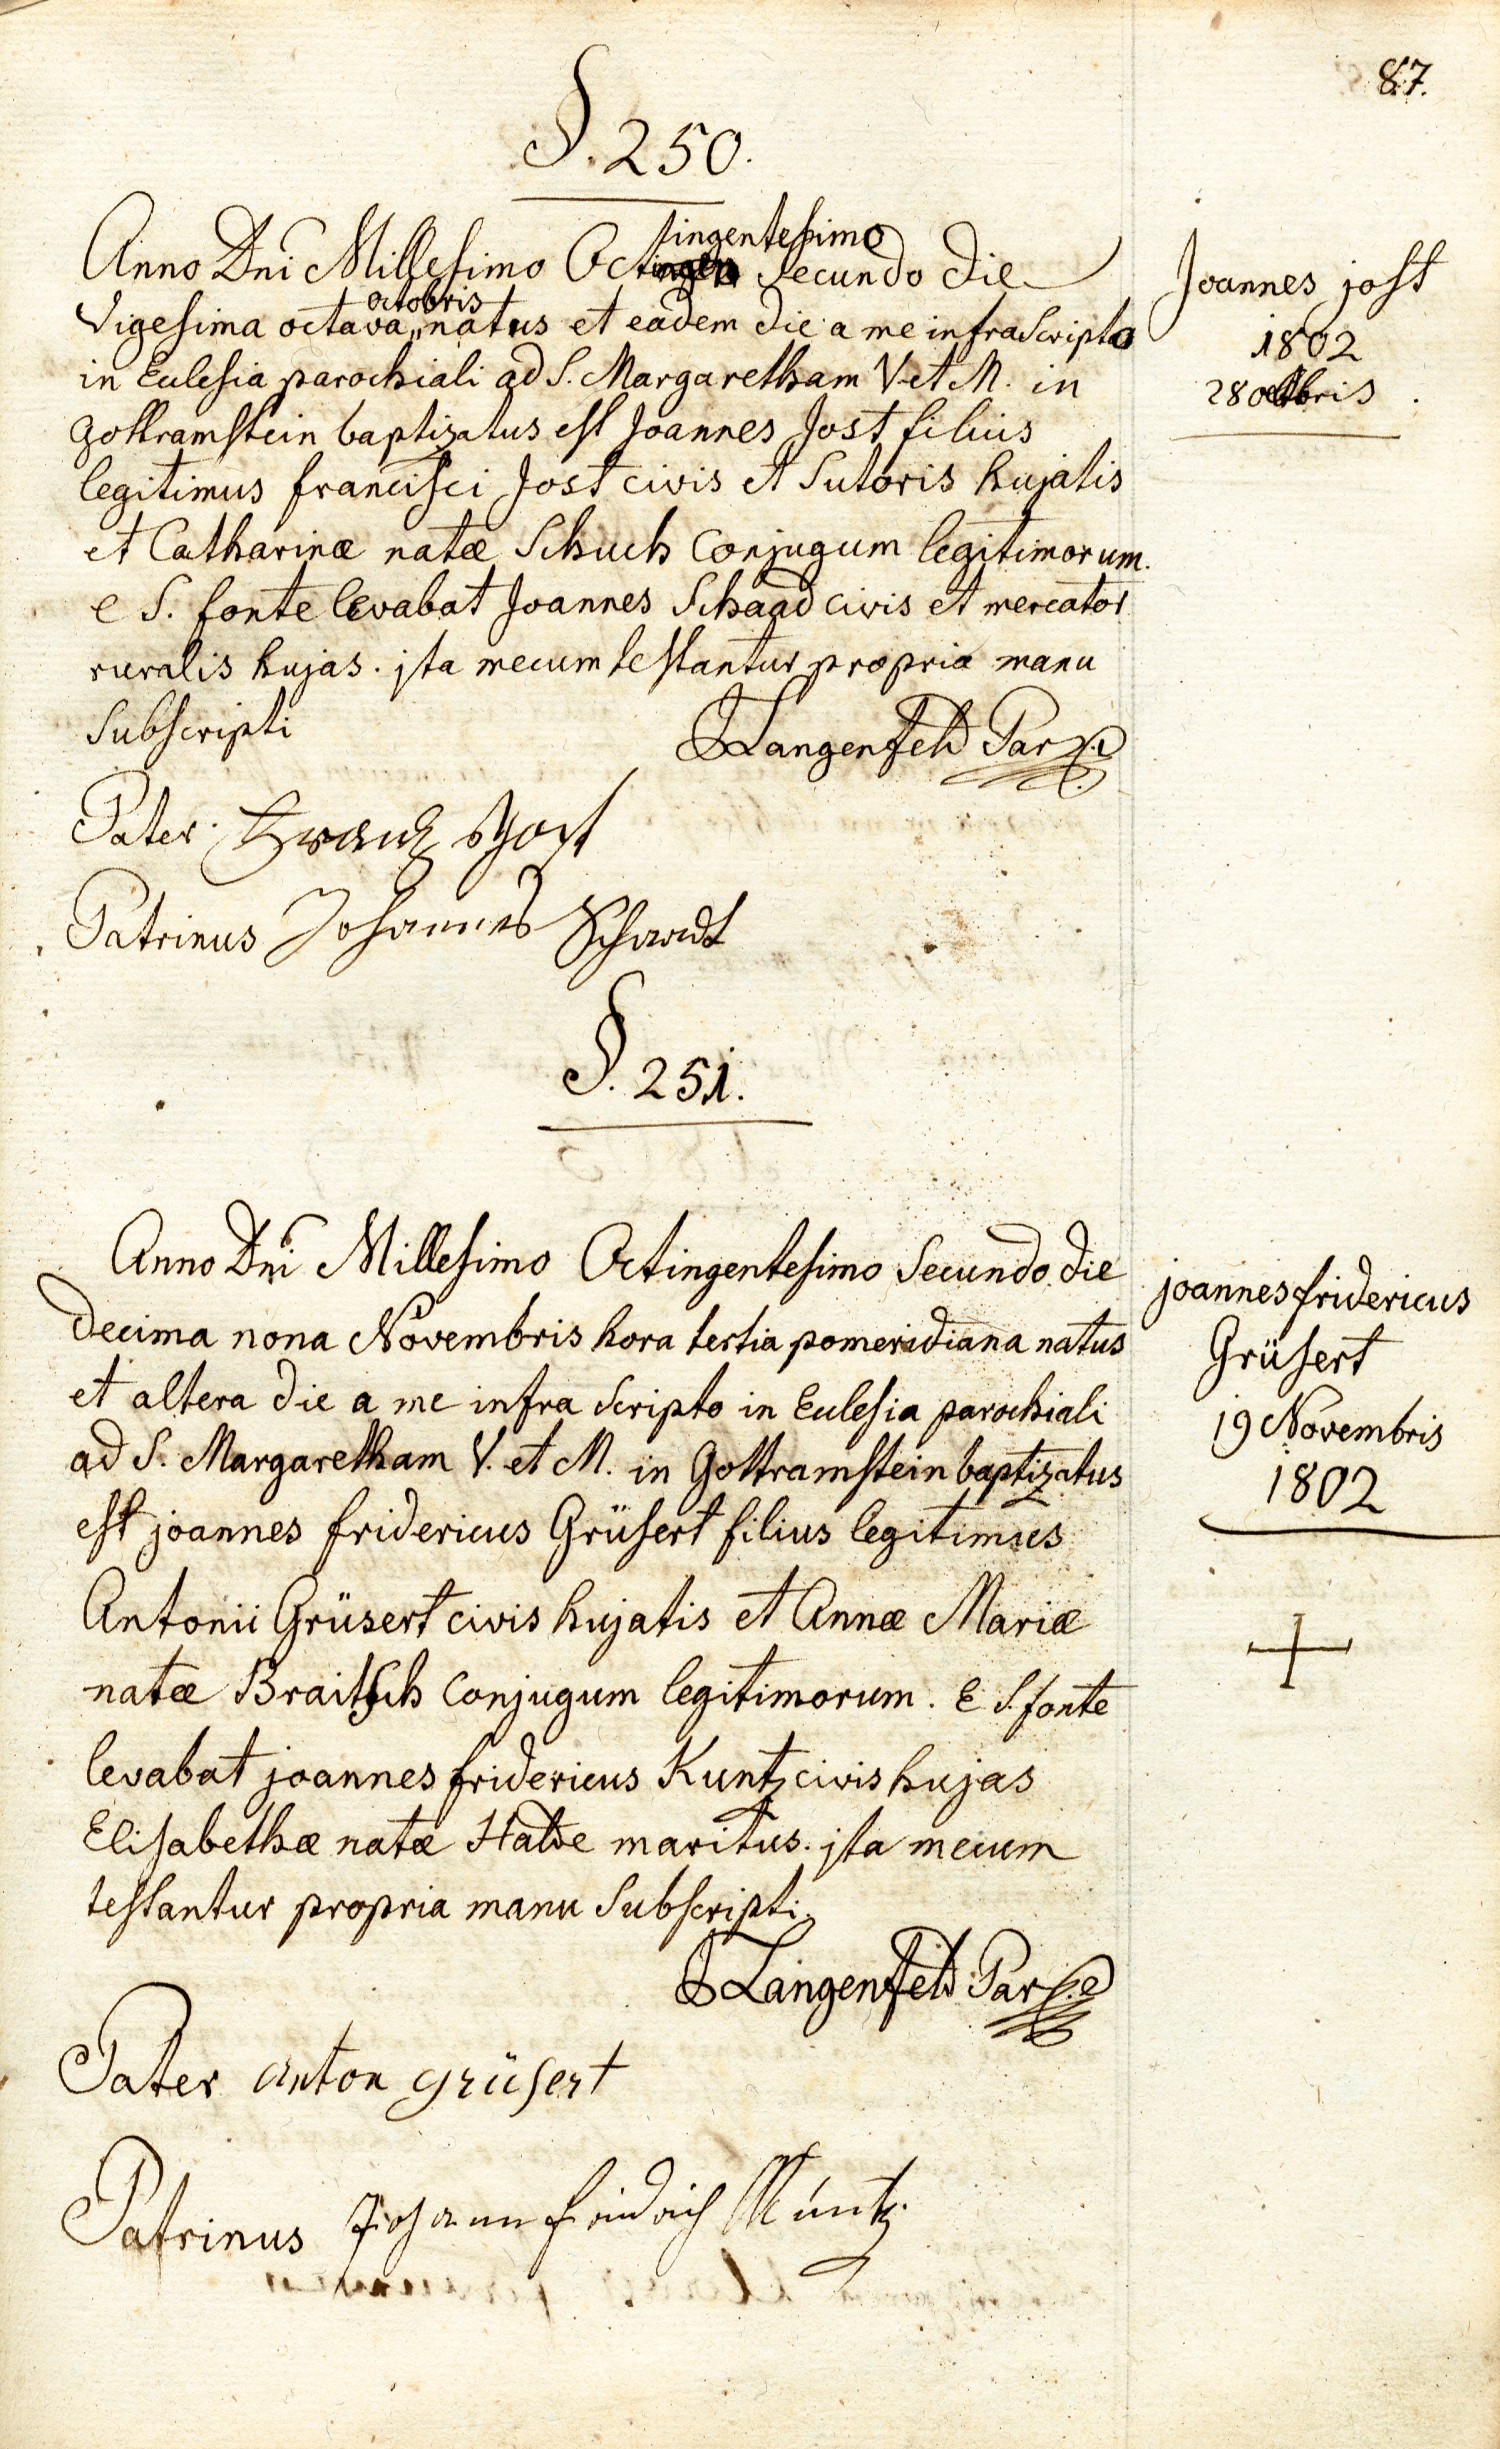 87.
§. 250.
Anno Dni Millesimo Octingentesimo Secundo die
Vigesima octava octobris natus et eadem die a me infra Scripto
in Eulesia parochiali ad S. Margaretham V. et M. in
gottramstein baptizatus est Joannes Jost filius
legitimus francisci Jost civis et Sutoris hujatis
et Catharinæ natæ Schuch Conjugum legitimorum.
e S. fonte levabat Joannes Schaad civis et mercator
ruralis hujas. jta mecum testantur propria manu
Subscripti
JLangenfeld Par
Pater. Franz Jost
Patrinus Johannes Schaadt
Joannes jost
1802
28 octbris.
§. 251.
Anno Dni Millesimo Octingentesimo Secundo die
decima nona Novembris hora tertia pomeridiana natus
et altera die a me infra Scripto in Eulesia parochiali
ad S. Margaretham V. et M. in gottramstein baptizatus
est joannes fridericus Grüsert filius legitimus
Antonii Grüsert civis hujatis et Annæ Mariæ
natæ Braitsch Conjugum legitimorum. E S. fonte
levabat joannes fridericus Kuntz civis hujas
Elisabethæ natæ Halde maritus. jta mecum
testantur propria manu Subscripti.
JLangenfeld Par
Pater anton grüsert
Patrinus Johann fridrich Kuntz
joannes fridericus
Grüsert
19 Novembris
1802